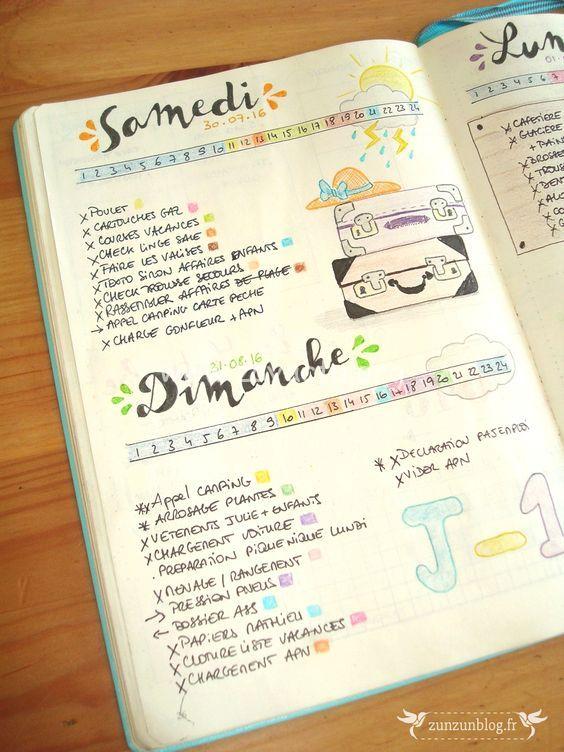 Samedi
30.07.16
1 2 3 4 5 6 7 8 9 10 11 12 13 14 15 16 17 18 19 20 21 22 23 24
x POULET
x CARTOUCHES GAZ
x COURSES VACANCES
x CHECK LINGE SALE
x FAIRE LES VALISES
x TDOTO SINON AFFAIRES ENFANTS
x CHECK TROUSSE SECOURS
x RASSEMBLER AFFAIRES DE PLAGE
→ APPEL CAMPING CARTE PECHE
x CHARGE GONFLEUR + APN
31.08.16
Dimanche
1 2 3 4 5 6 7 8 9 10 11 12 13 14 15 16 17 18 19 20 21 22 23 24
*x APPEL CAMPING
* ARROSAGE PLANTES
x VETEMENTS JULIE + ENFANTS
x CHARGEMENT VOITURE
. PREPARATION PIQUE NIQUE LUNDI
x MENAGE / RANGEMENT
→ PRESSION PNEUS
← DOSSIER ASS
x PAPIERS MATHIEU
x CLOTURE LISTE VACANCES
x CHARGEMENT APN
x
* x DECLARATION PAJEMPLOI
x VIDER APN
J-1
Lun
01.
1 2 3 4 5 6 7
x CAFETIERE
x GLACIERE
+ PAIN
x BROSSE
x TROU
x DENT
x
x
x
zunzunblog.fr